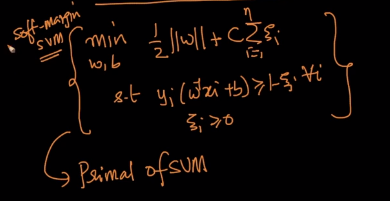 soft-margin
SVM
min 1/2 ||w|| + C Σ ξi
w,b i=1 n
s.t yi(wᵀxi + b) ≥ 1-ξi ∀i
ξi ≥ 0
Primal of SVM